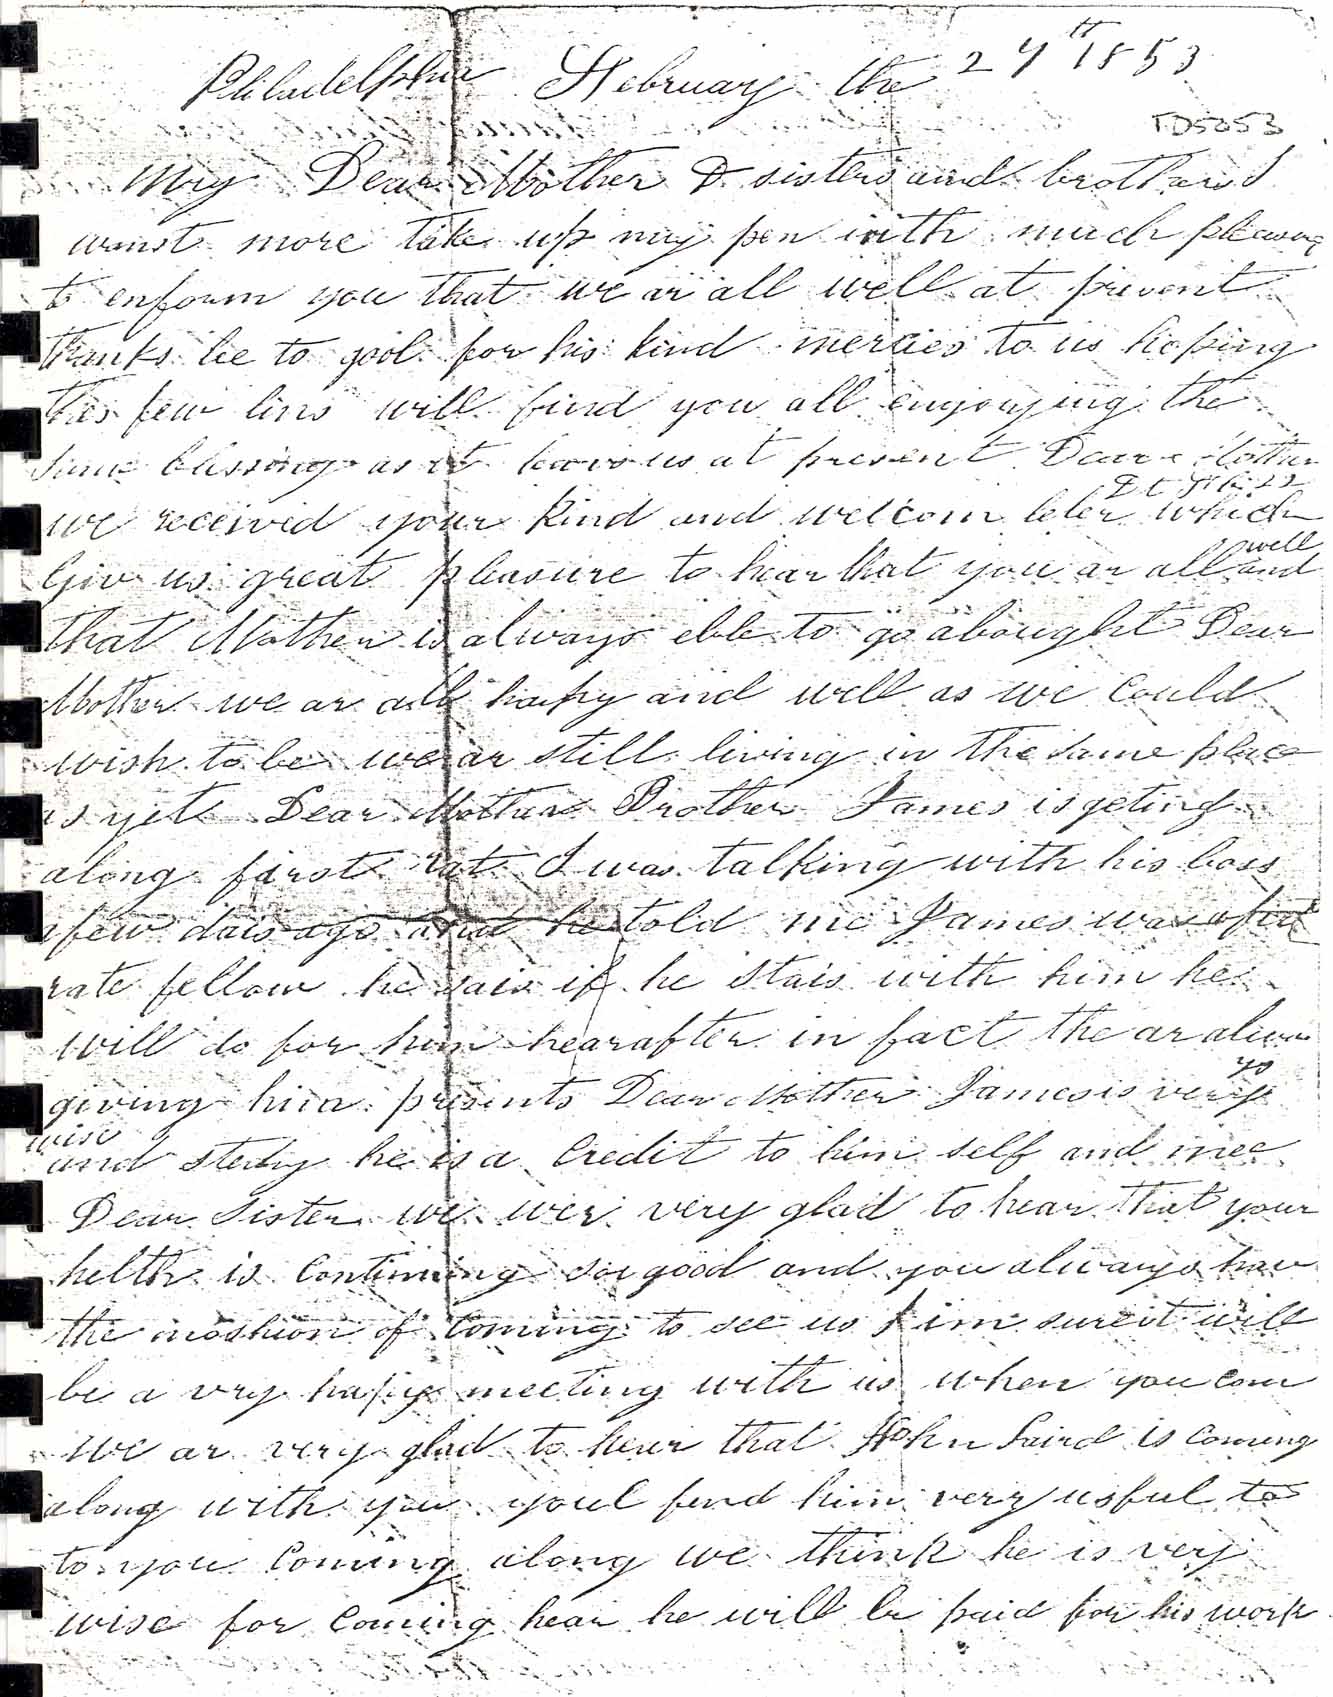 Philadelphia February the 24th 1853
TD5053
My Dear Mother & sisters and brothers I
wonst more take up my pen with much pleasure
to enform you that we ar all well at present
thanks be to god for his kind mercies to us hoping
this few lins will find you all enjoying the
same blessing as it leavs us at present Dear Mother
we received your kind and welcom leter which
Giv us great pleasure to hear that you ar all well and
that Mother is always eble to go abought Dear
Mother we ar all hapy and well as we Could
wish to be we ar still living in the same place
as yet Dear Mother Brother James is geting
along farst rate I was talking with his boss
a few dais ago and he told me James was a first
rate fellow he sais if he stais with him he
will do for him hearafter in fact the ar always
giving him presents Dear Mother James is very
wise
and stedy he is a Credit to him self and mee
Dear Sister we wer very glad to hear that your
helth is Continuing soi good and you always hav
the moshion of Coming to see us I im sure it will
be a vry hapy meeting with us when you com
we ar very glad to hear that John Laird is Coming
along with you youl find him very usful to
to you Coming along we think he is very
wise for Coming hear he will be paid for his work